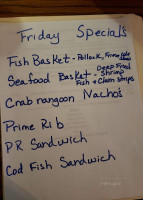 Friday Specials
Fish Basket - Pollock, Fries
Seafood Basket - Deep Fried
Shrimp
Fish & Clam Strips
Crab rangoon Nachos
Prime Rib
PR Sandwich
Cod Fish Sandwich